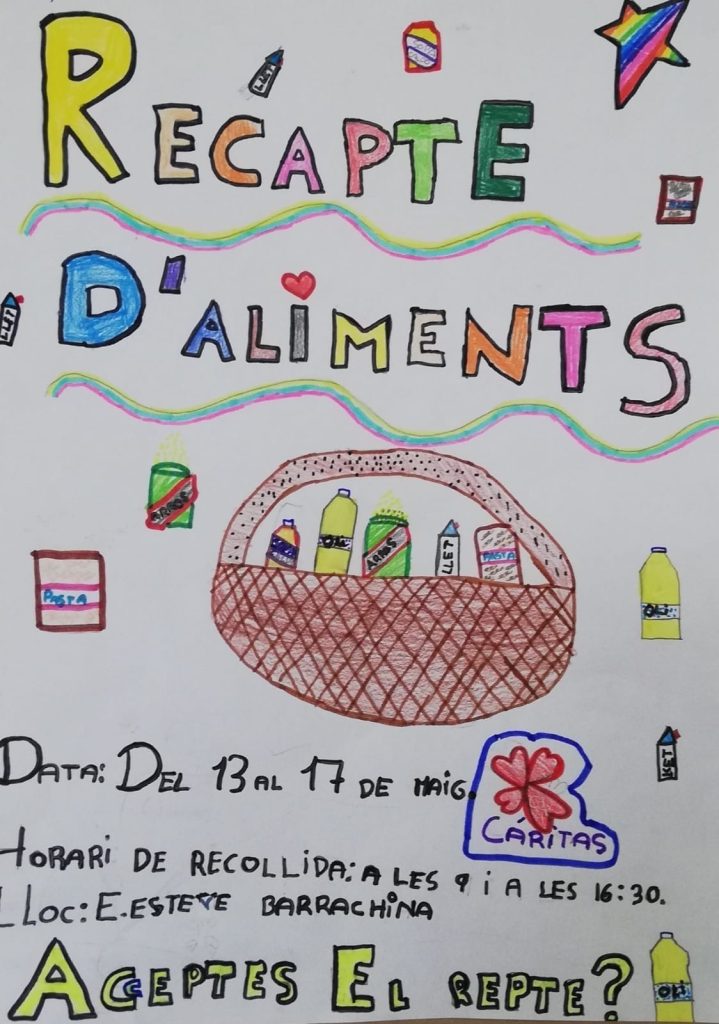 RECAPTE
D'ALIMENTS
LLET
LLET
PASTA
ARROS
ARROS
LLET
PASTA
PASTA
OLI
LLET
DATA: DEL 13 AL 17 DE MAIG.
CÁRITAS
HORARI DE RECOLLIDA: A LES 9 i A LES 16:30.
LLOC: E. ESTEVE BARRACHINA
ACCEPTES EL REPTE?
OLI